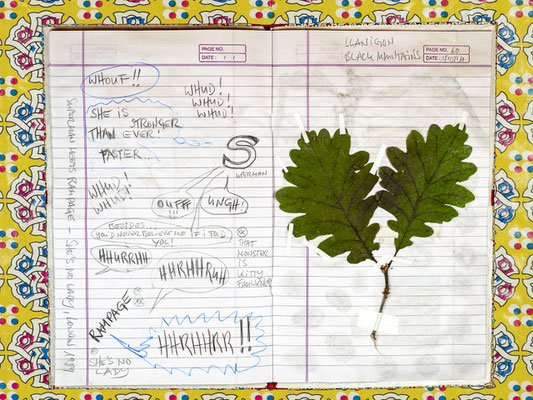 PAGE NO.
DATE :
WHOUF!!
WHUD!
WHUD!
WHUD!
SHE IS
STRONGER
THAN EVER!
FASTER..
S
UPERMAN
WHUD!
WHUD!
OUFFF
!!!
UNGH!
BESIDES...
YOU'D NEVER BELIEVE ME IF I TOLD
YOU!
HHURRHH
HHRHHRUH
THAT
MONSTER
IS
KITTY
FAULKNER
RAMPAGE
HHRHHRR!!
©
SHE'S NO
LADY
SUPERMAN MEETS RAMPAGE – SHE'S NO LADY, 1989
LLANIGON
BLACK MOUNTAINS
PAGE NO. 60
DATE :